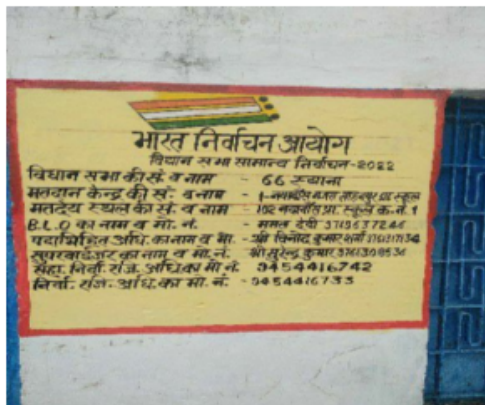 भारत निर्वाचन आयोग
विधान सभा सामान्य निर्वाचन-2022
विधान सभा की सं. व नाम - 66 स्याना
मतदान केन्द्र की सं. व नाम - 1- स्कूल
मतदेय स्थल का सं. व नाम - प्रा. स्कूल क.नं. 1
B.L.O का नाम व मो. नं. - ममता देवी
पदाभिहित अधि. का नाम व मो. - श्री विनोद कुमार शर्मा
सुपरवाईजर का नाम व मो. नं. श्री सुरेन्द्र कुमार
सहा. निर्वा. रजि. अधि. का मो नं. 9454416742
निर्वा. रजि. अधि. का मो. नं. - 9454416733